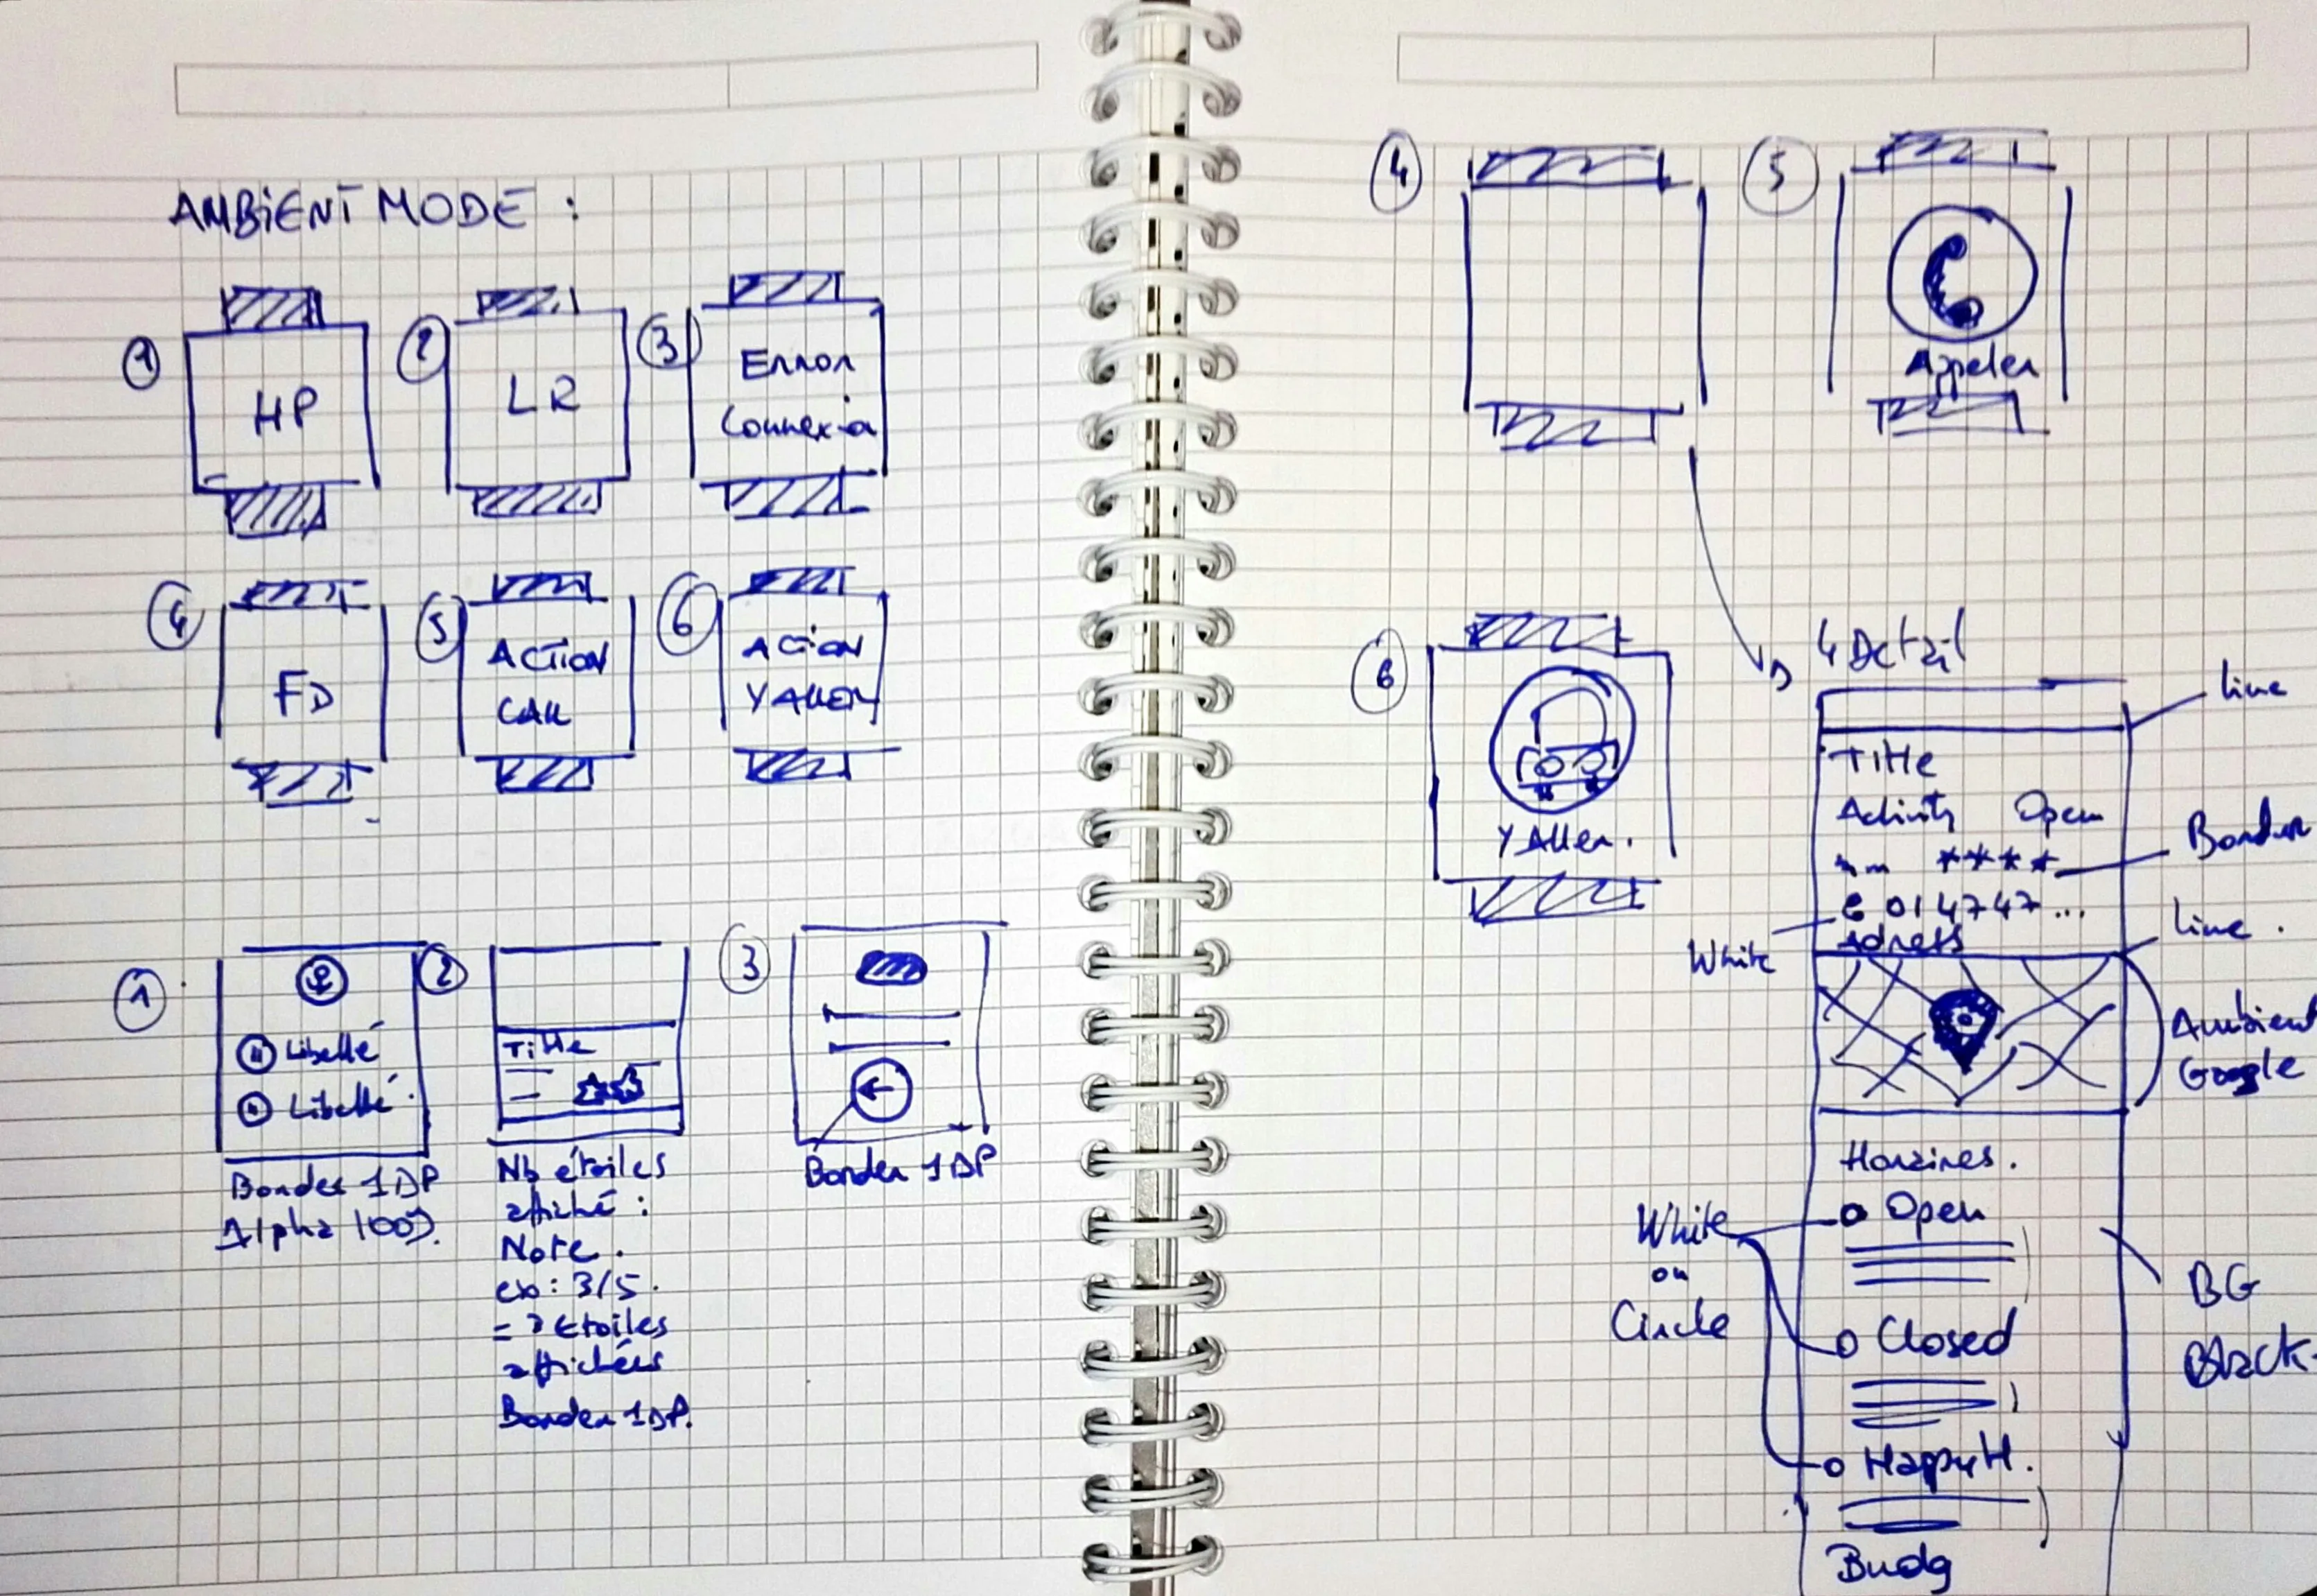 AMBIENT MODE :
1
HP
2
LR
3
Error
Connexion
4
FD
5
ACTION
CALL
6
ACTION
Y ALLER
1
Libellé
Libellé
Border 1DP
Alpha 100%
2
Title
Nb étoiles
affiché :
Note.
ex : 3/5.
= 3 Etoiles
affichées
Border 1DP.
3
Border 1DP
4
5
Appeler
6
Y Aller.
4 Detail
line
Title
Activity Open
Border
****
014747...
White
Adress
Line.
Ambient
Google
Horaires.
Open
White
ou
Circle
BG
Black
Closed
Happy H.
Budg